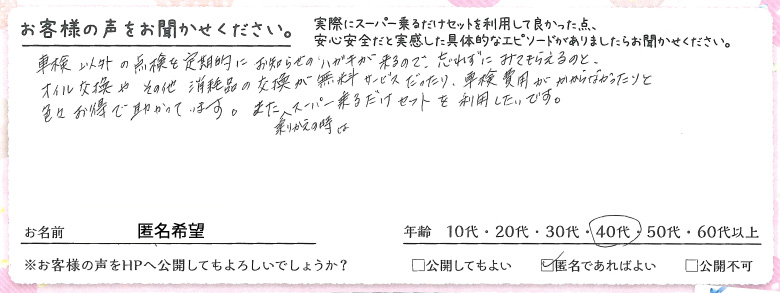 お客様の声をお聞かせください。
実際にスーパー乗るだけセットを利用して良かった点、
安心安全だと実感した具体的なエピソードがありましたらお聞かせください。
車検以外の点検を定期的にお知らせのハガキが来るので、忘れずにみてもらえるのと、
オイル交換やその他消耗品の交換が無料サービスだったり、車検費用がかからなかったりと
色々お得で助かっています。また、スーパー乗るだけセットを利用したいです。
乗りかえの時は
お名前 匿名希望
年齢 10代・20代・30代・40代・50代・60代以上
※お客様の声をHPへ公開してもよろしいでしょうか？ □公開してもよい ☑匿名であればよい □公開不可